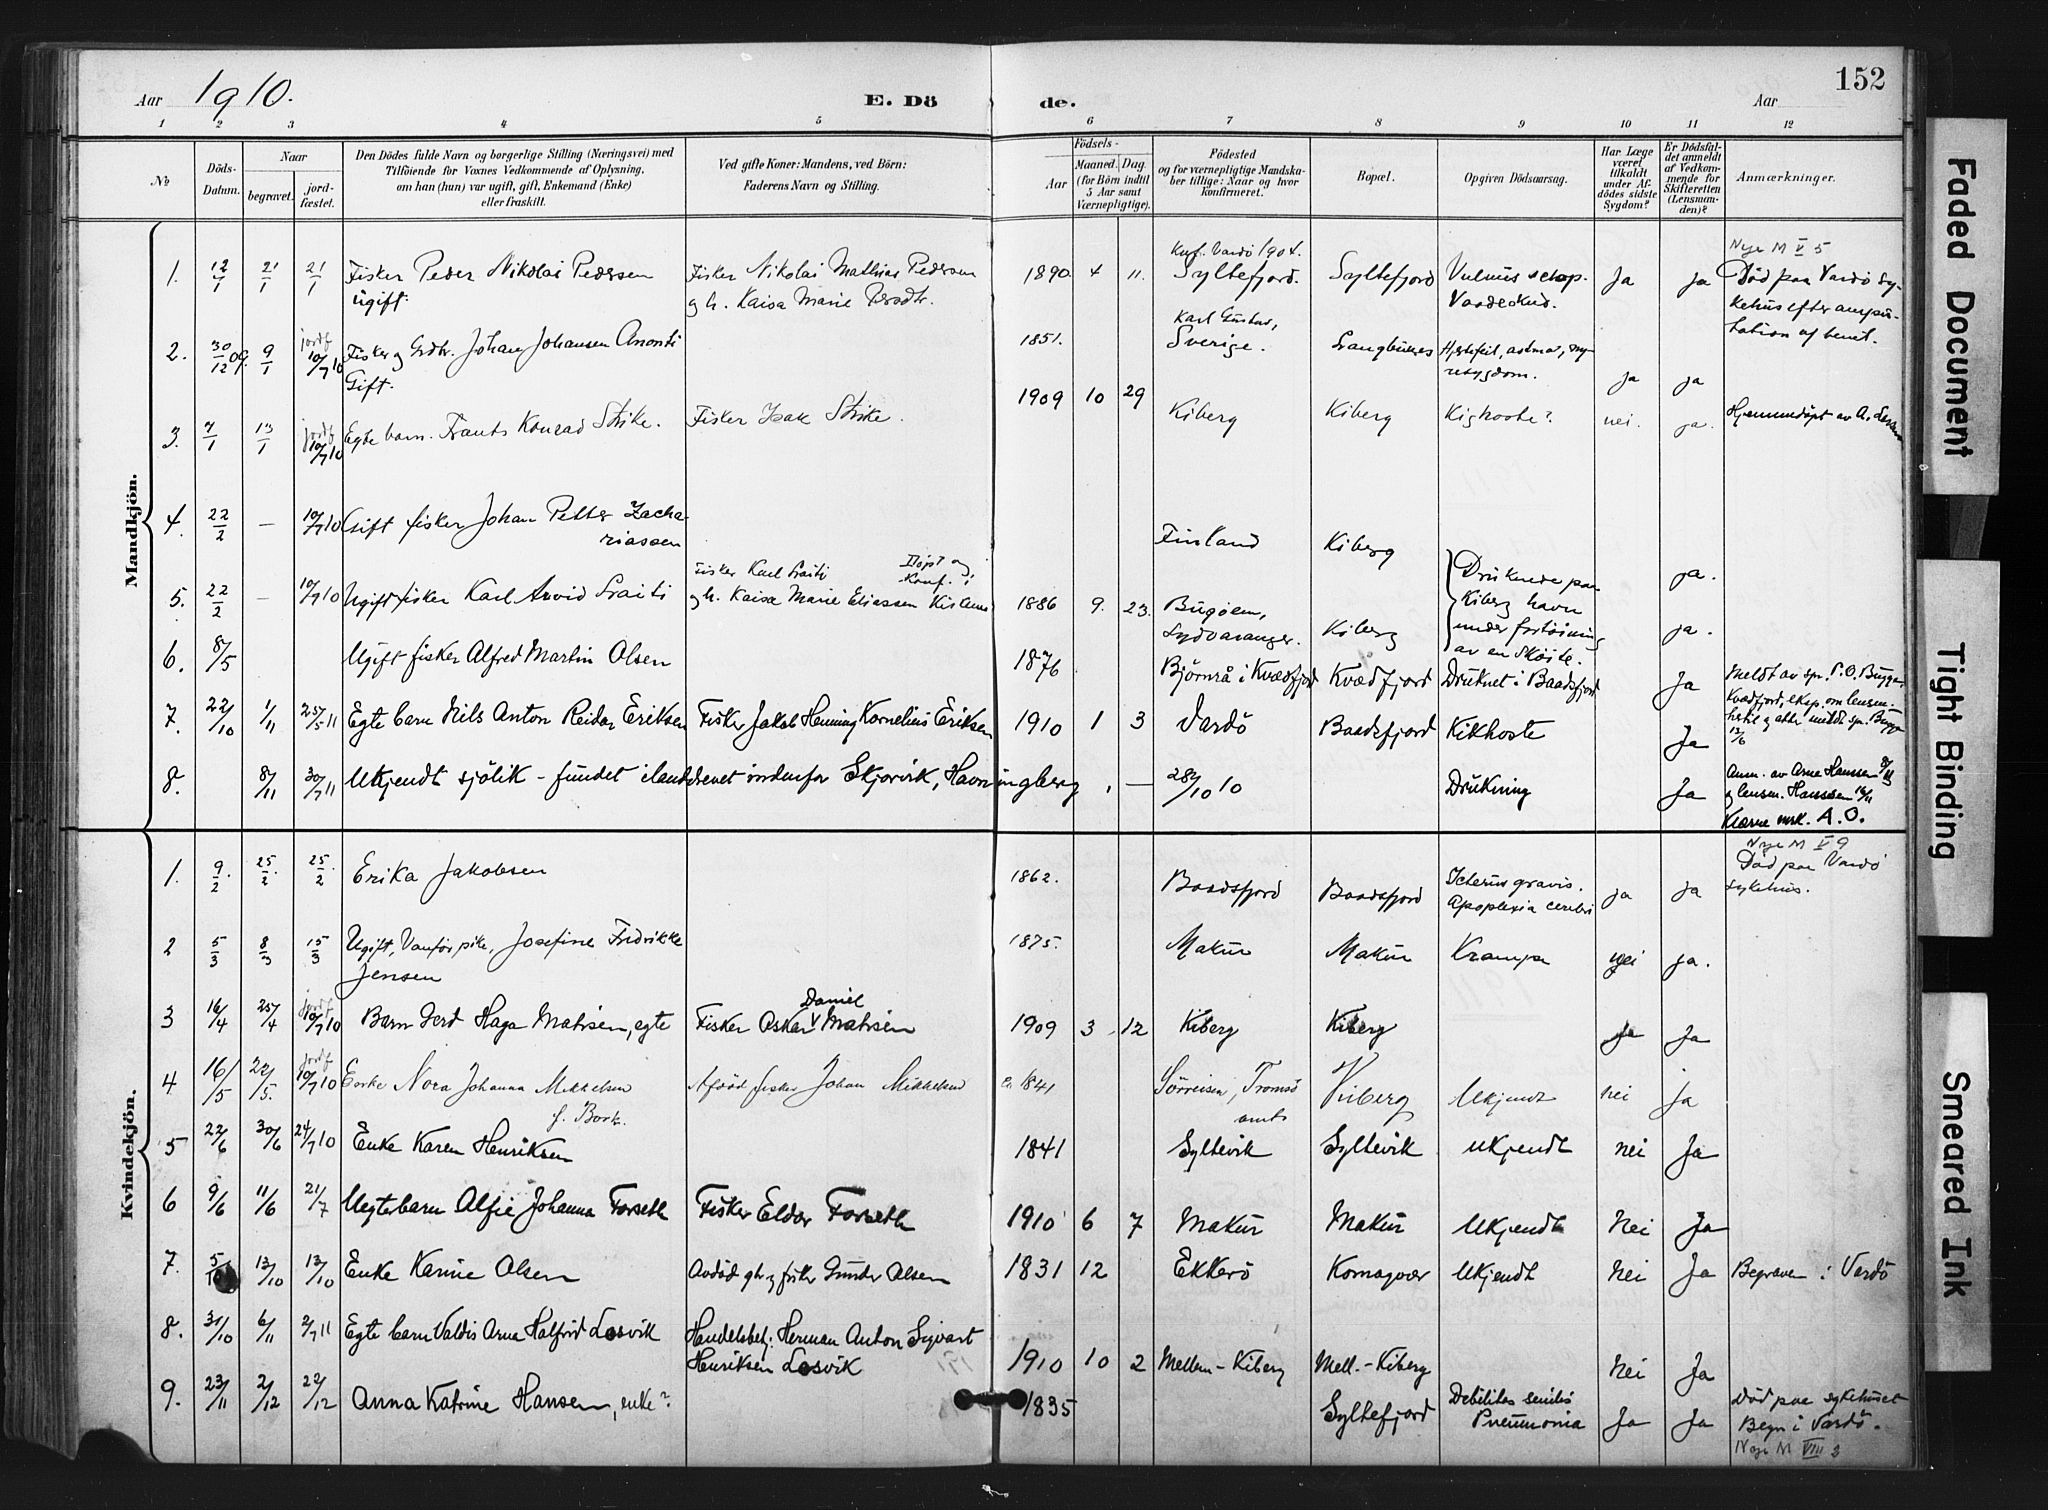 152
Aar 1910.
E. Dö
de.
Aar
1 2 3 4 5 6 7 8 9 10 11 12
No
Döds-
Datum.
Naar
begravet.
jord-
fæstet.
Den Dödes fulde Navn og borgerlige Stilling (Næringsvei) med
Tilföiende for Voxnes Vedkommende af Oplysning,
om han (hun) var ugift, gift, Enkemand (Enke)
eller fraskilt.
Ved gifte Koner: Mandens, ved Börn:
Faderens Navn og Stilling.
Födsels-
Aar
Maaned. Dag.
(for Börn indtil
5 Aar samt
Værnepligtige).
Födested
og for værnepligtige Mandska-
ber tillige: Naar og hvor
konfirmeret.
Bopæl.
Opgiven Dödsaarsag.
Har Læge
været
tilkaldt
under Af-
dödes sidste
Sygdom?
Er Dödsfal-
det anmeldt
af Vedkom-
mende for
Skifteretten
(Lensman-
den)?
Anmærkninger.
Mandkjön.
Nye M V 5
Konf. Vardö 1904.
1. 12/1 21/1 21/1 Fisker Peder Nikolai Pedersen Fisker Nikolai Mathias Pedersen 1890 4 11. Syltefjord. Syltefjord Vulnus sclop. Ja Ja Död paa Vardö sy-
ugift. og h. Kaisa Marie Vaadeskud. kehus efter ampu-
tation af benet.
Karl Gustav,
2. 30/12 09. 9/1 jordf 10/7 10 Fisker og Grdbr. Johan Johansen Ononti 1851. Sverige. Langbunes Hjertefeil, astma, ny-
Gift. resygdom. ja ja
3. 7/1 13/1 jordf 10/7 10 Egte barn. Frants Konrad Strike. Fisker Isak Strike. 1909 10 29 Kiberg Kiberg Kighoste? nei. ja. Hjemmedöpt av A.
4. 22/2 — 10/7 10 Gift fisker Johan Petter Zacha-
riassen Finland Kiberg ja.
Fisker Karl Döpt og
Konf. i
5. 22/2 — 10/7 10 Ugift fisker Karl Arvid og h. Kaisa Marie Eliassen 1886 9. 23. Bugöen,
Sydvaranger. Kiberg ja.
Druknede paa
Kiberg havn
under fortöining
av en sköite.
6. 8/5 Ugift fisker Alfred Martin Olsen 1876 Björnrå i Kvædfjord Kvædfjord Druknet i Baadsfjord Ja Meldt av sp. P.O. Bugge,
Kvædfjord, eksp. om lensm.
hertil og atter meldt sp. Bugge
12/6
7. 22/10 1/11 25/5 11 Egte barn Nils Anton Reidar Eriksen Fisker Jakob Henning Kornelius Eriksen 1910 1 3 Vardö Baadsfjord Kikhoste Ja
8. 8/11 30/7 11 Ukjendt sjölik – fundet ilanddrevet indenfor Skjorvik, Havningberg — 28/10 10 Drukning Ja Anm. av Arne Hanssen 8/11
og lensm. Hanssen 16/11
Klærne mrk. A.O.
Kvindekjön.
Nye M V 9
1. 9/2. 25/2 25/2. Erika Jakobsen 1862. Baadsfjord Baadsfjord Icterus gravis. ja ja Död paa Vardö
Apoplexia cerebri sykehus.
2 5/3 8/3 15/3 Ugift, Vanför pike, Josefine Fredrikke
Jensen 1875. Makur Makur Krampe nei ja.
3 16/4 25/4 jordf 10/7 10 Barn Gerd Haga Mathisen, egte Fisker Oskar Daniel Mathisen 1909 3 12 Kiberg Kiberg ja Ja
4 16/5 22/5. jordf 10/7 10 Enke Nora Johanna Mikkelsen Afdöd fisker Johan Mikkelsen 1841 Sörreisen, Tromsö
amt Kiberg Ukjendt nei ja
f. Bork.
5 22/6 30/6 24/7 10 Enke Karen Henriksen 1841 Syltevik Syltevik ukjendt nei Ja
6 9/6 11/6 21/7 Uegtebarn Alfie Johanna Forseth Fisker Eldor Forseth 1910 6 7 Makur Makur Ukjendt Nei Ja
7. 5/10 13/10 13/10 Enke Karine Olsen Avdöd gbr og fisker Gunder Olsen 1831 12 Ekkerö Komagvær Ukjendt Nei Ja Begraven i Vardö
8. 31/10 6/11 2/7 11 Egte barn Valdis Arna Halfrid Losvik Handelsbetj. Herman Anton Sigvart
Henriksen Losvik 1910 10 2 Mellem-Kiberg Mell.-Kiberg Nei Ja
9. 23/11 2/12 22/12 Anna Katrine Hansen, enke? 1835 Syltefjord Debilitas senilis
Pneumonia Ja Ja Död paa sykehuset
Begr. i Vardö.
Nye M VIII 3
Faded Document
Tight Binding
Smeared Ink